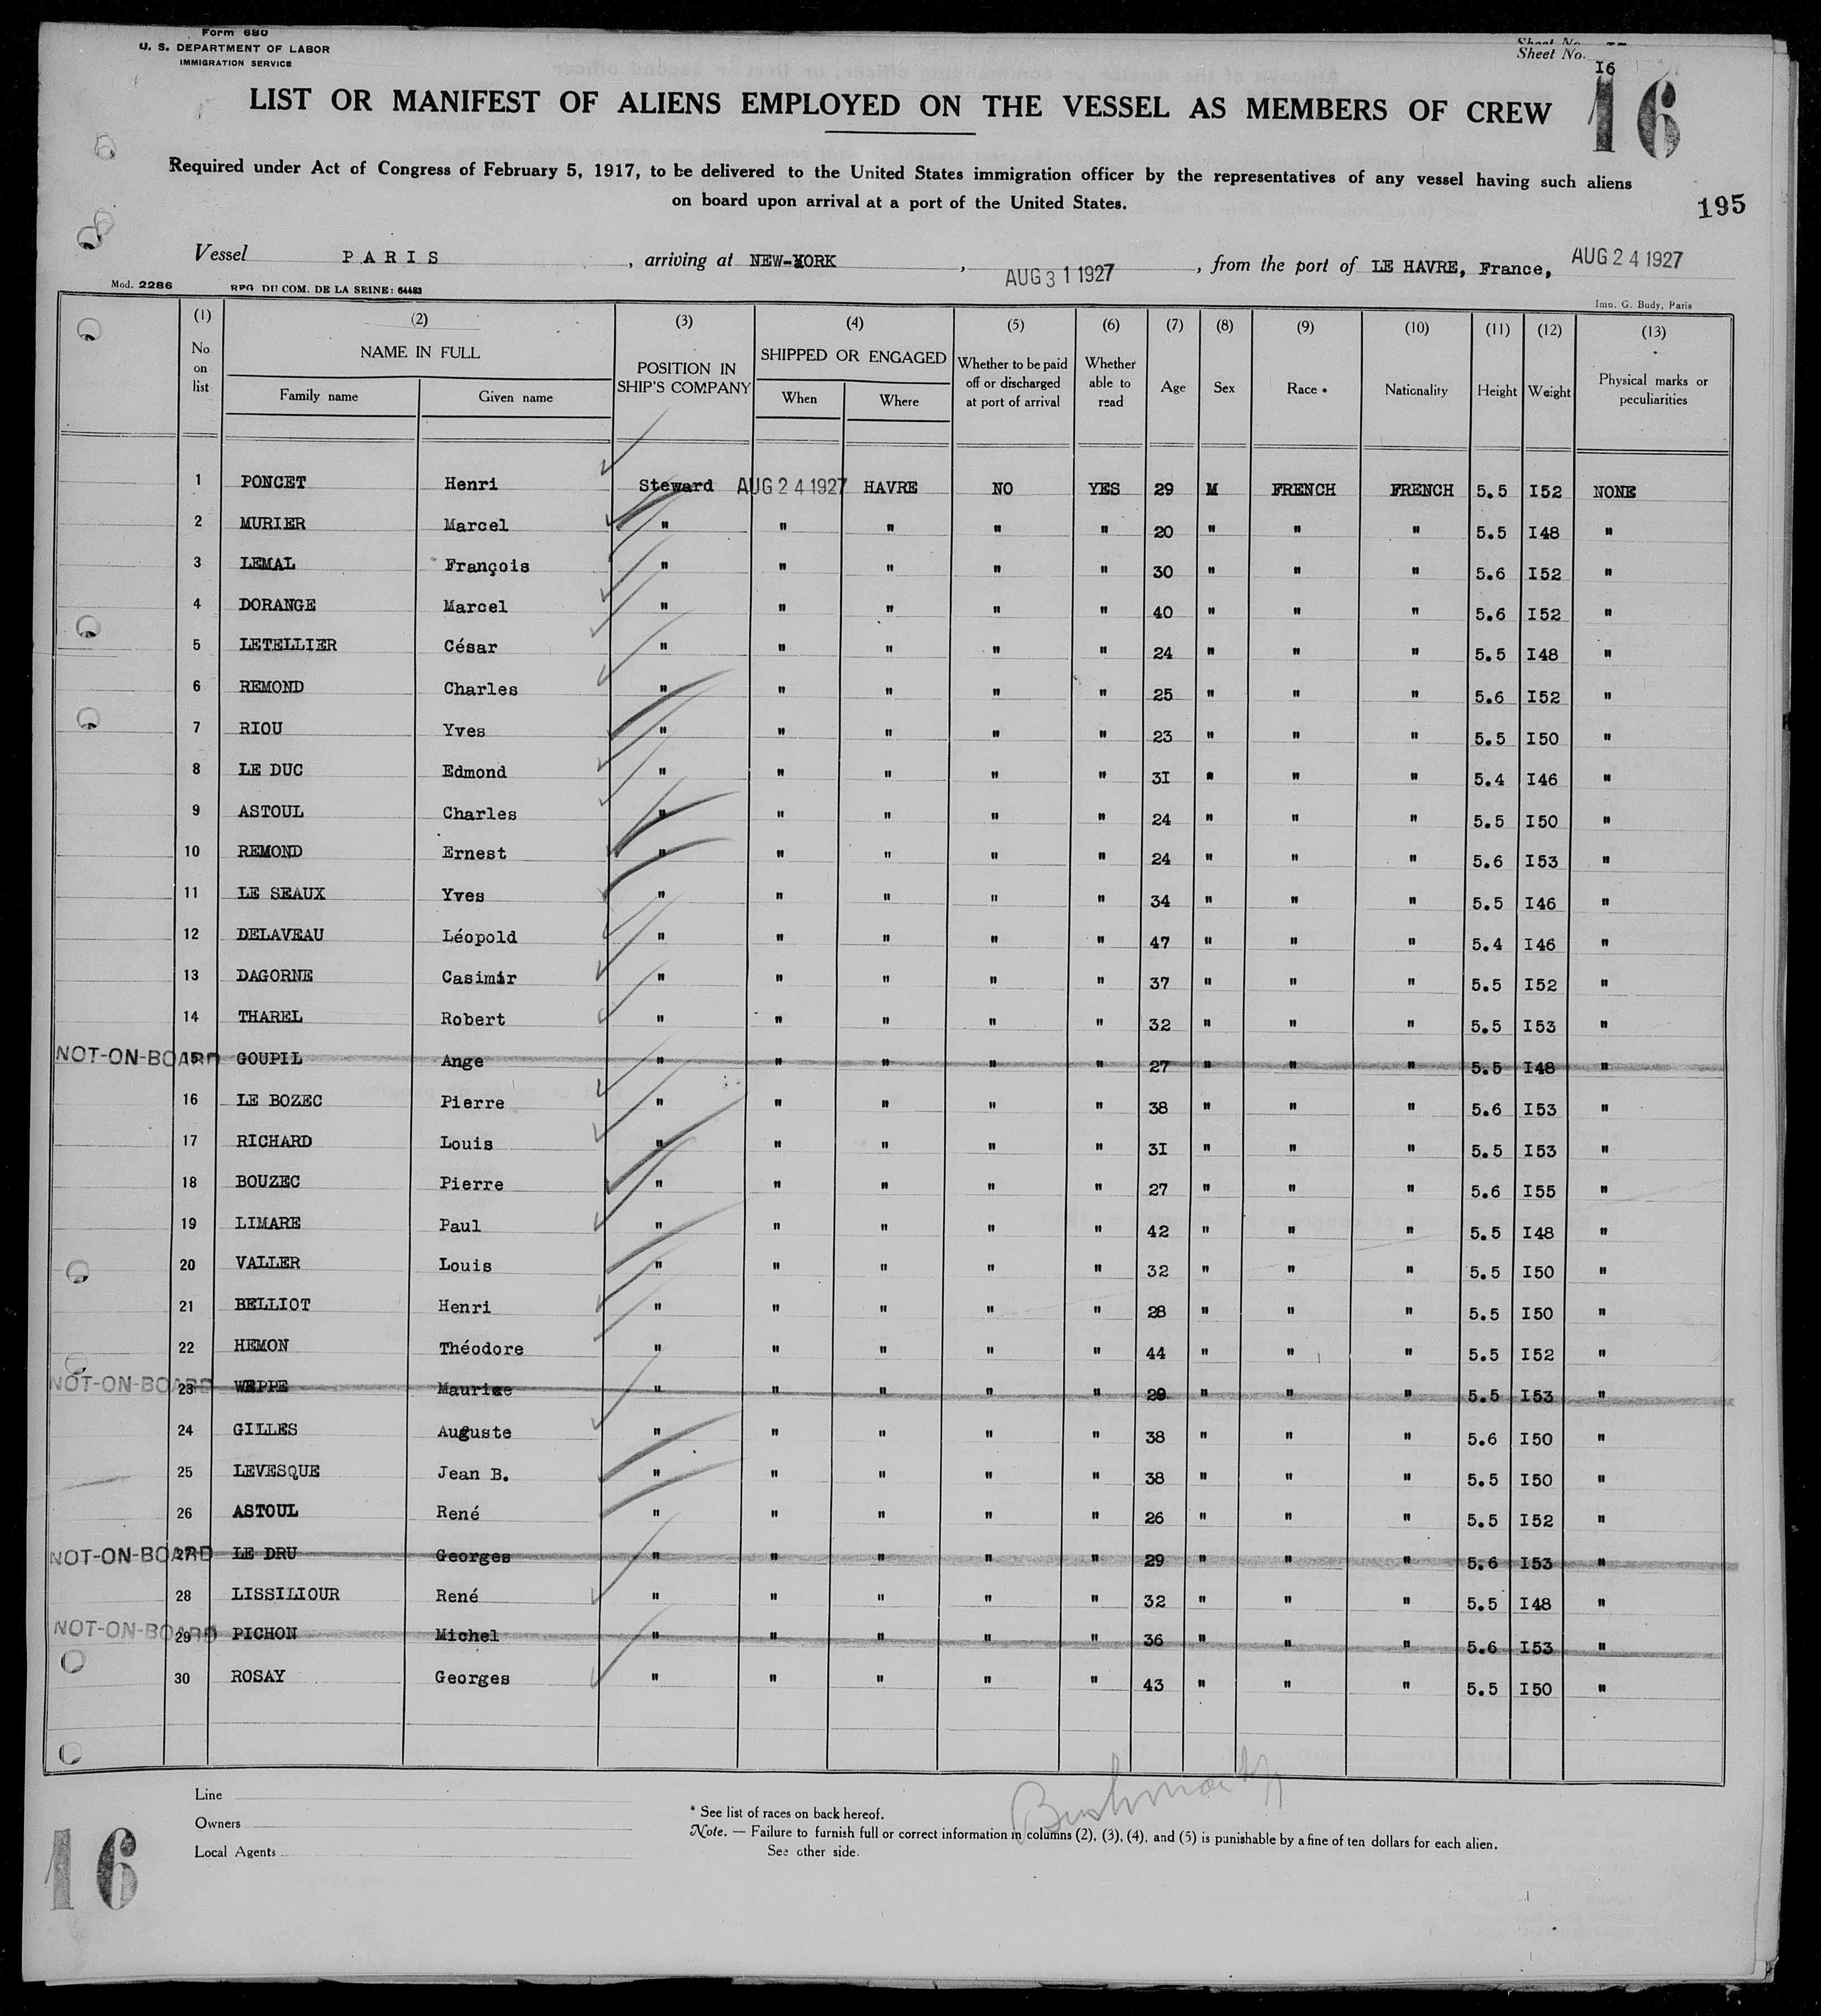 Form 680
U. S. DEPARTMENT OF LABOR
IMMIGRATION SERVICE
Sheet No.
Sheet No. I6
16
LIST OR MANIFEST OF ALIENS EMPLOYED ON THE VESSEL AS MEMBERS OF CREW
Required under Act of Congress of February 5, 1917, to be delivered to the United States immigration officer by the representatives of any vessel having such aliens
on board upon arrival at a port of the United States.
195
Vessel PARIS, arriving at NEW-YORK, AUG 31 1927, from the port of LE HAVRE, France, AUG 24 1927
Mod. 2286 RPG DU COM. DE LA SEINE: 64483 Imp. G. Budy, Paris
(1) (2) (3) (4) (5) (6) (7) (8) (9) (10) (11) (12) (13)
No on list NAME IN FULL Family name Given name POSITION IN SHIP'S COMPANY SHIPPED OR ENGAGED When Where Whether to be paid off or discharged at port of arrival Whether able to read Age Sex Race * Nationality Height Weight Physical marks or peculiarities
1 PONCET Henri Steward AUG 24 1927 HAVRE NO YES 29 M FRENCH FRENCH 5.5 I52 NONE
2 MURIER Marcel " " " " " 20 " " " 5.5 I48 "
3 LEMAL François " " " " " 30 " " " 5.6 I52 "
4 DORANGE Marcel " " " " " 40 " " " 5.6 I52 "
5 LETELLIER César " " " " " 24 " " " 5.5 I48 "
6 REMOND Charles " " " " " 25 " " " 5.6 I52 "
7 RIOU Yves " " " " " 23 " " " 5.5 I50 "
8 LE DUC Edmond " " " " " 3I " " " 5.4 I46 "
9 ASTOUL Charles " " " " " 24 " " " 5.5 I50 "
10 REMOND Ernest " " " " " 24 " " " 5.6 I53 "
11 LE SEAUX Yves " " " " " 34 " " " 5.5 I46 "
12 DELAVEAU Léopold " " " " " 47 " " " 5.4 I46 "
13 DAGORNE Casimir " " " " " 37 " " " 5.5 I52 "
14 THAREL Robert " " " " " 32 " " " 5.5 I53 "
NOT-ON-BOARD 15 GOUPIL Ange " " " " " 27 " " " 5.5 I48 "
16 LE BOZEC Pierre " " " " " 38 " " " 5.6 I53 "
17 RICHARD Louis " " " " " 3I " " " 5.5 I53 "
18 BOUZEC Pierre " " " " " 27 " " " 5.6 I55 "
19 LIMARE Paul " " " " " 42 " " " 5.5 I48 "
20 VALLER Louis " " " " " 32 " " " 5.5 I50 "
21 BELLIOT Henri " " " " " 28 " " " 5.5 I50 "
22 HEMON Théodore " " " " " 44 " " " 5.5 I52 "
NOT-ON-BOARD 23 WEPPE Maurice " " " " " 29 " " " 5.5 I53 "
24 GILLES Auguste " " " " " 38 " " " 5.6 I50 "
25 LEVESQUE Jean B. " " " " " 38 " " " 5.5 I50 "
26 ASTOUL René " " " " " 26 " " " 5.5 I52 "
NOT-ON-BOARD 27 LE DRU Georges " " " " " 29 " " " 5.6 I53 "
28 LISSILIOUR René " " " " " 32 " " " 5.5 I48 "
NOT-ON-BOARD 29 PICHON Michel " " " " " 36 " " " 5.6 I53 "
30 ROSAY Georges " " " " " 43 " " " 5.5 I50 "
Line
Owners
Local Agents
* See list of races on back hereof.
Note. — Failure to furnish full or correct information in columns (2), (3), (4), and (5) is punishable by a fine of ten dollars for each alien.
See other side.
16